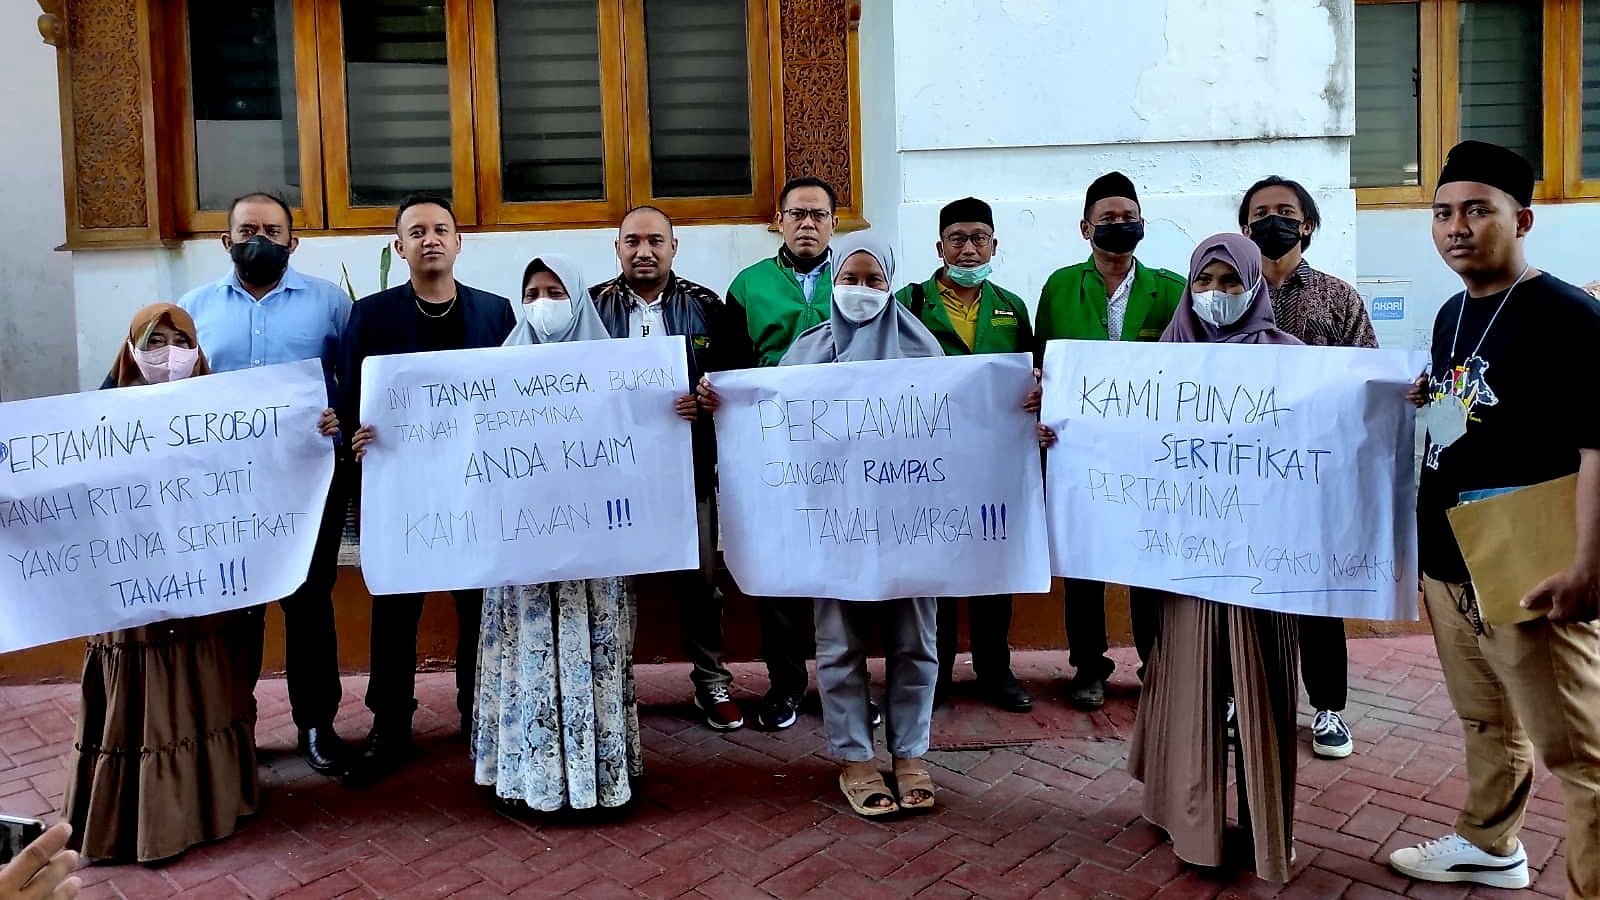 PERTAMINA SEROBOT
TANAH RT.12 KR JATI
YANG PUNYA SERTIFIKAT
TANAH !!!
INI TANAH WARGA. BUKAN
TANAH PERTAMINA
ANDA KLAIM
KAMI LAWAN !!!
PERTAMINA
JANGAN RAMPAS
TANAH WARGA !!!
KAMI PUNYA
SERTIFIKAT
PERTAMINA
JANGAN NGAKU NGAKU
AKARI